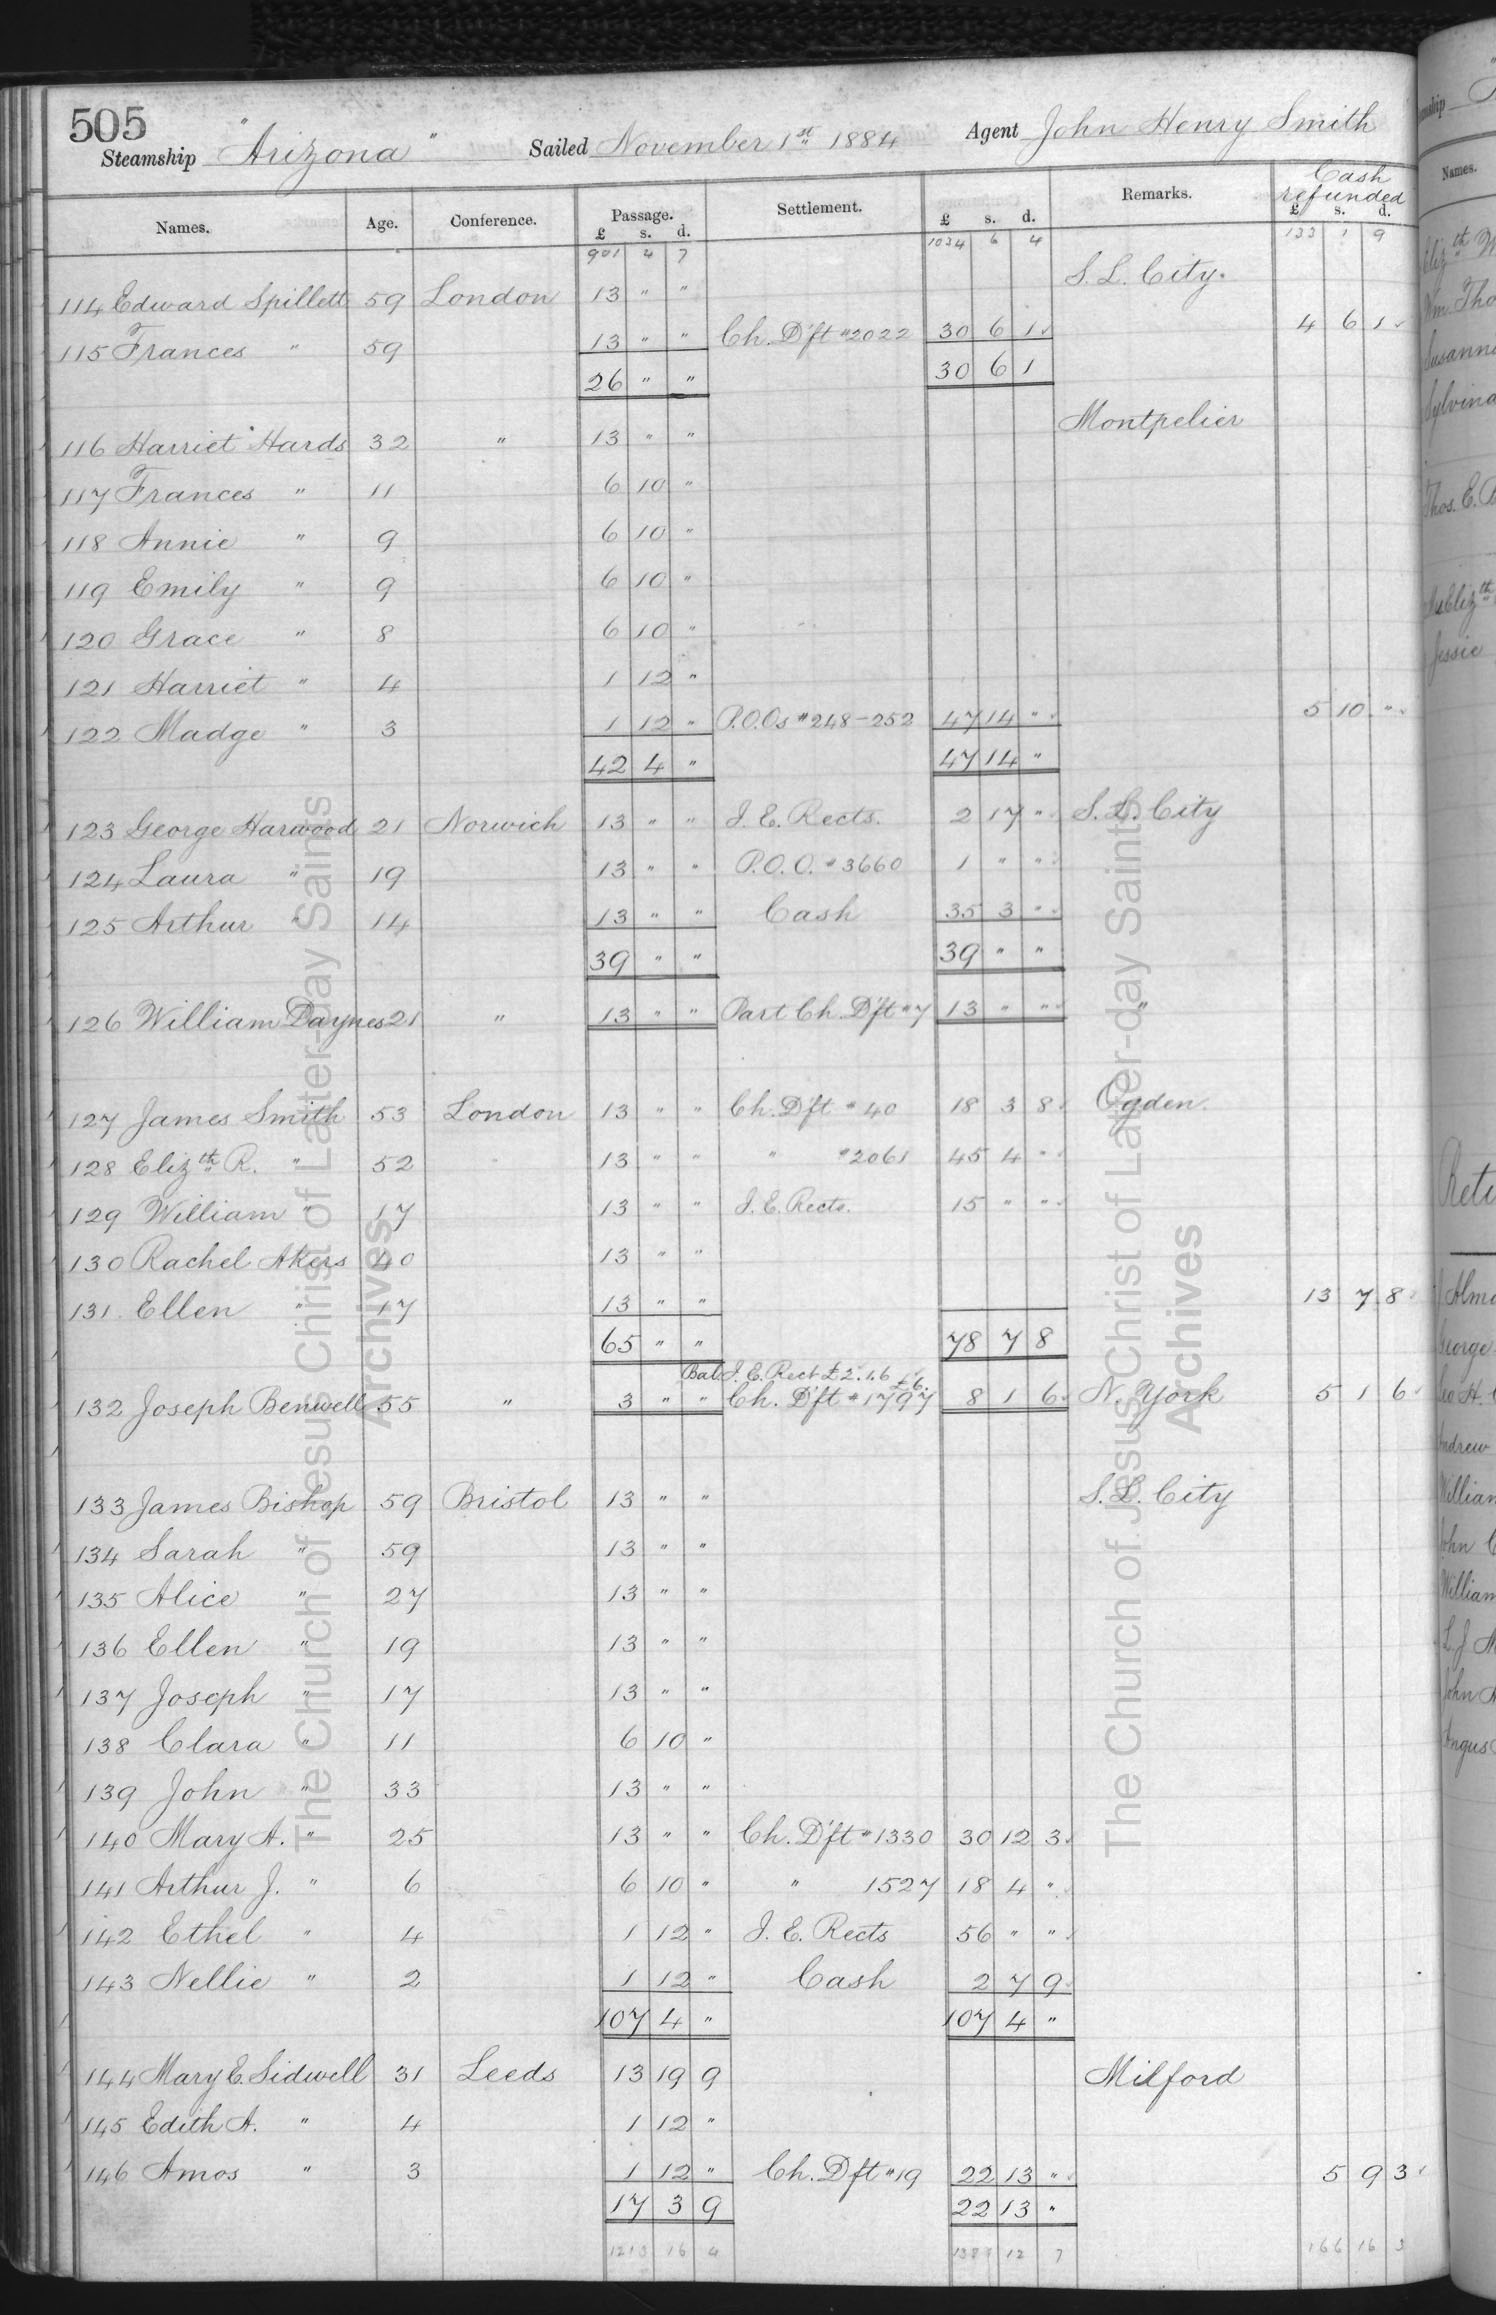 505
Steamship "Arizona" Sailed November 1st 1884 Agent John Henry Smith
Names. Age. Conference. Passage. £ s. d. Settlement. £ s. d. Remarks. Cash refunded £ s. d.
901 4 7 1034 6 4 133 1 9
114 Edward Spillett 59 London 13 " " S. L. City.
115 Frances " 59 13 " " Ch. D'ft #2022 30 6 1 4 6 1
26 " " 30 6 1
116 Harriet Hards 32 " 13 " " Montpelier
117 Frances " 11 6 10 "
118 Annie " 9 6 10 "
119 Emily " 9 6 10 "
120 Grace " 8 6 10 "
121 Harriet " 4 1 12 "
122 Madge " 3 1 12 " P.O.Os #248-252 47 14 " 5 10 "
42 4 " 47 14 "
123 George Harwood 21 Norwich 13 " " I. E. Rects. 2 17 " S. L. City
124 Laura " 19 13 " " P.O.O. #3660 1 " "
125 Arthur " 14 13 " " Cash 35 3 "
39 " " 39 " "
126 William Daynes 21 " 13 " " Part Ch. D'ft #7 13 " " "
127 James Smith 53 London 13 " " Ch. D'ft #40 18 3 8 Ogden.
128 Elizth R. " 52 13 " " " #2061 45 4 "
129 William " 17 13 " " I. E. Rects. 15 " "
130 Rachel Akers 40 13 " "
131. Ellen " 17 13 " " 13 7 8
65 " " 78 7 8
Bal. I. E. Rect £2.1.6 £6.
132 Joseph Benwell 55 " 3 " " Ch. D'ft #1797 8 1 6 N. York 5 1 6
133 James Bishop 59 Bristol 13 " " S. L. City
134 Sarah " 59 13 " "
135 Alice " 27 13 " "
136 Ellen " 19 13 " "
137 Joseph " 17 13 " "
138 Clara " 11 6 10 "
139 John " 33 13 " "
140 Mary A. " 25 13 " " Ch. D'ft #1330 30 12 3
141 Arthur J. " 6 6 10 " " 1527 18 4 "
142 Ethel " 4 1 12 " I. E. Rects 56 " "
143 Nellie " 2 1 12 " Cash 2 7 9
107 4 " 107 4 "
144 Mary E. Sidwell 31 Leeds 13 19 9 Milford
145 Edith A. " 4 1 12 "
146 Amos " 3 1 12 " Ch. Dft #19 22 13 " 5 9 3
17 3 9 22 13 "
16 4 12 7 166 16 3
The Church of Jesus Christ of Latter-day Saints
Archives
The Church of Jesus Christ of Latter-day Saints
Archives
Names.
Jessie
George
William
William